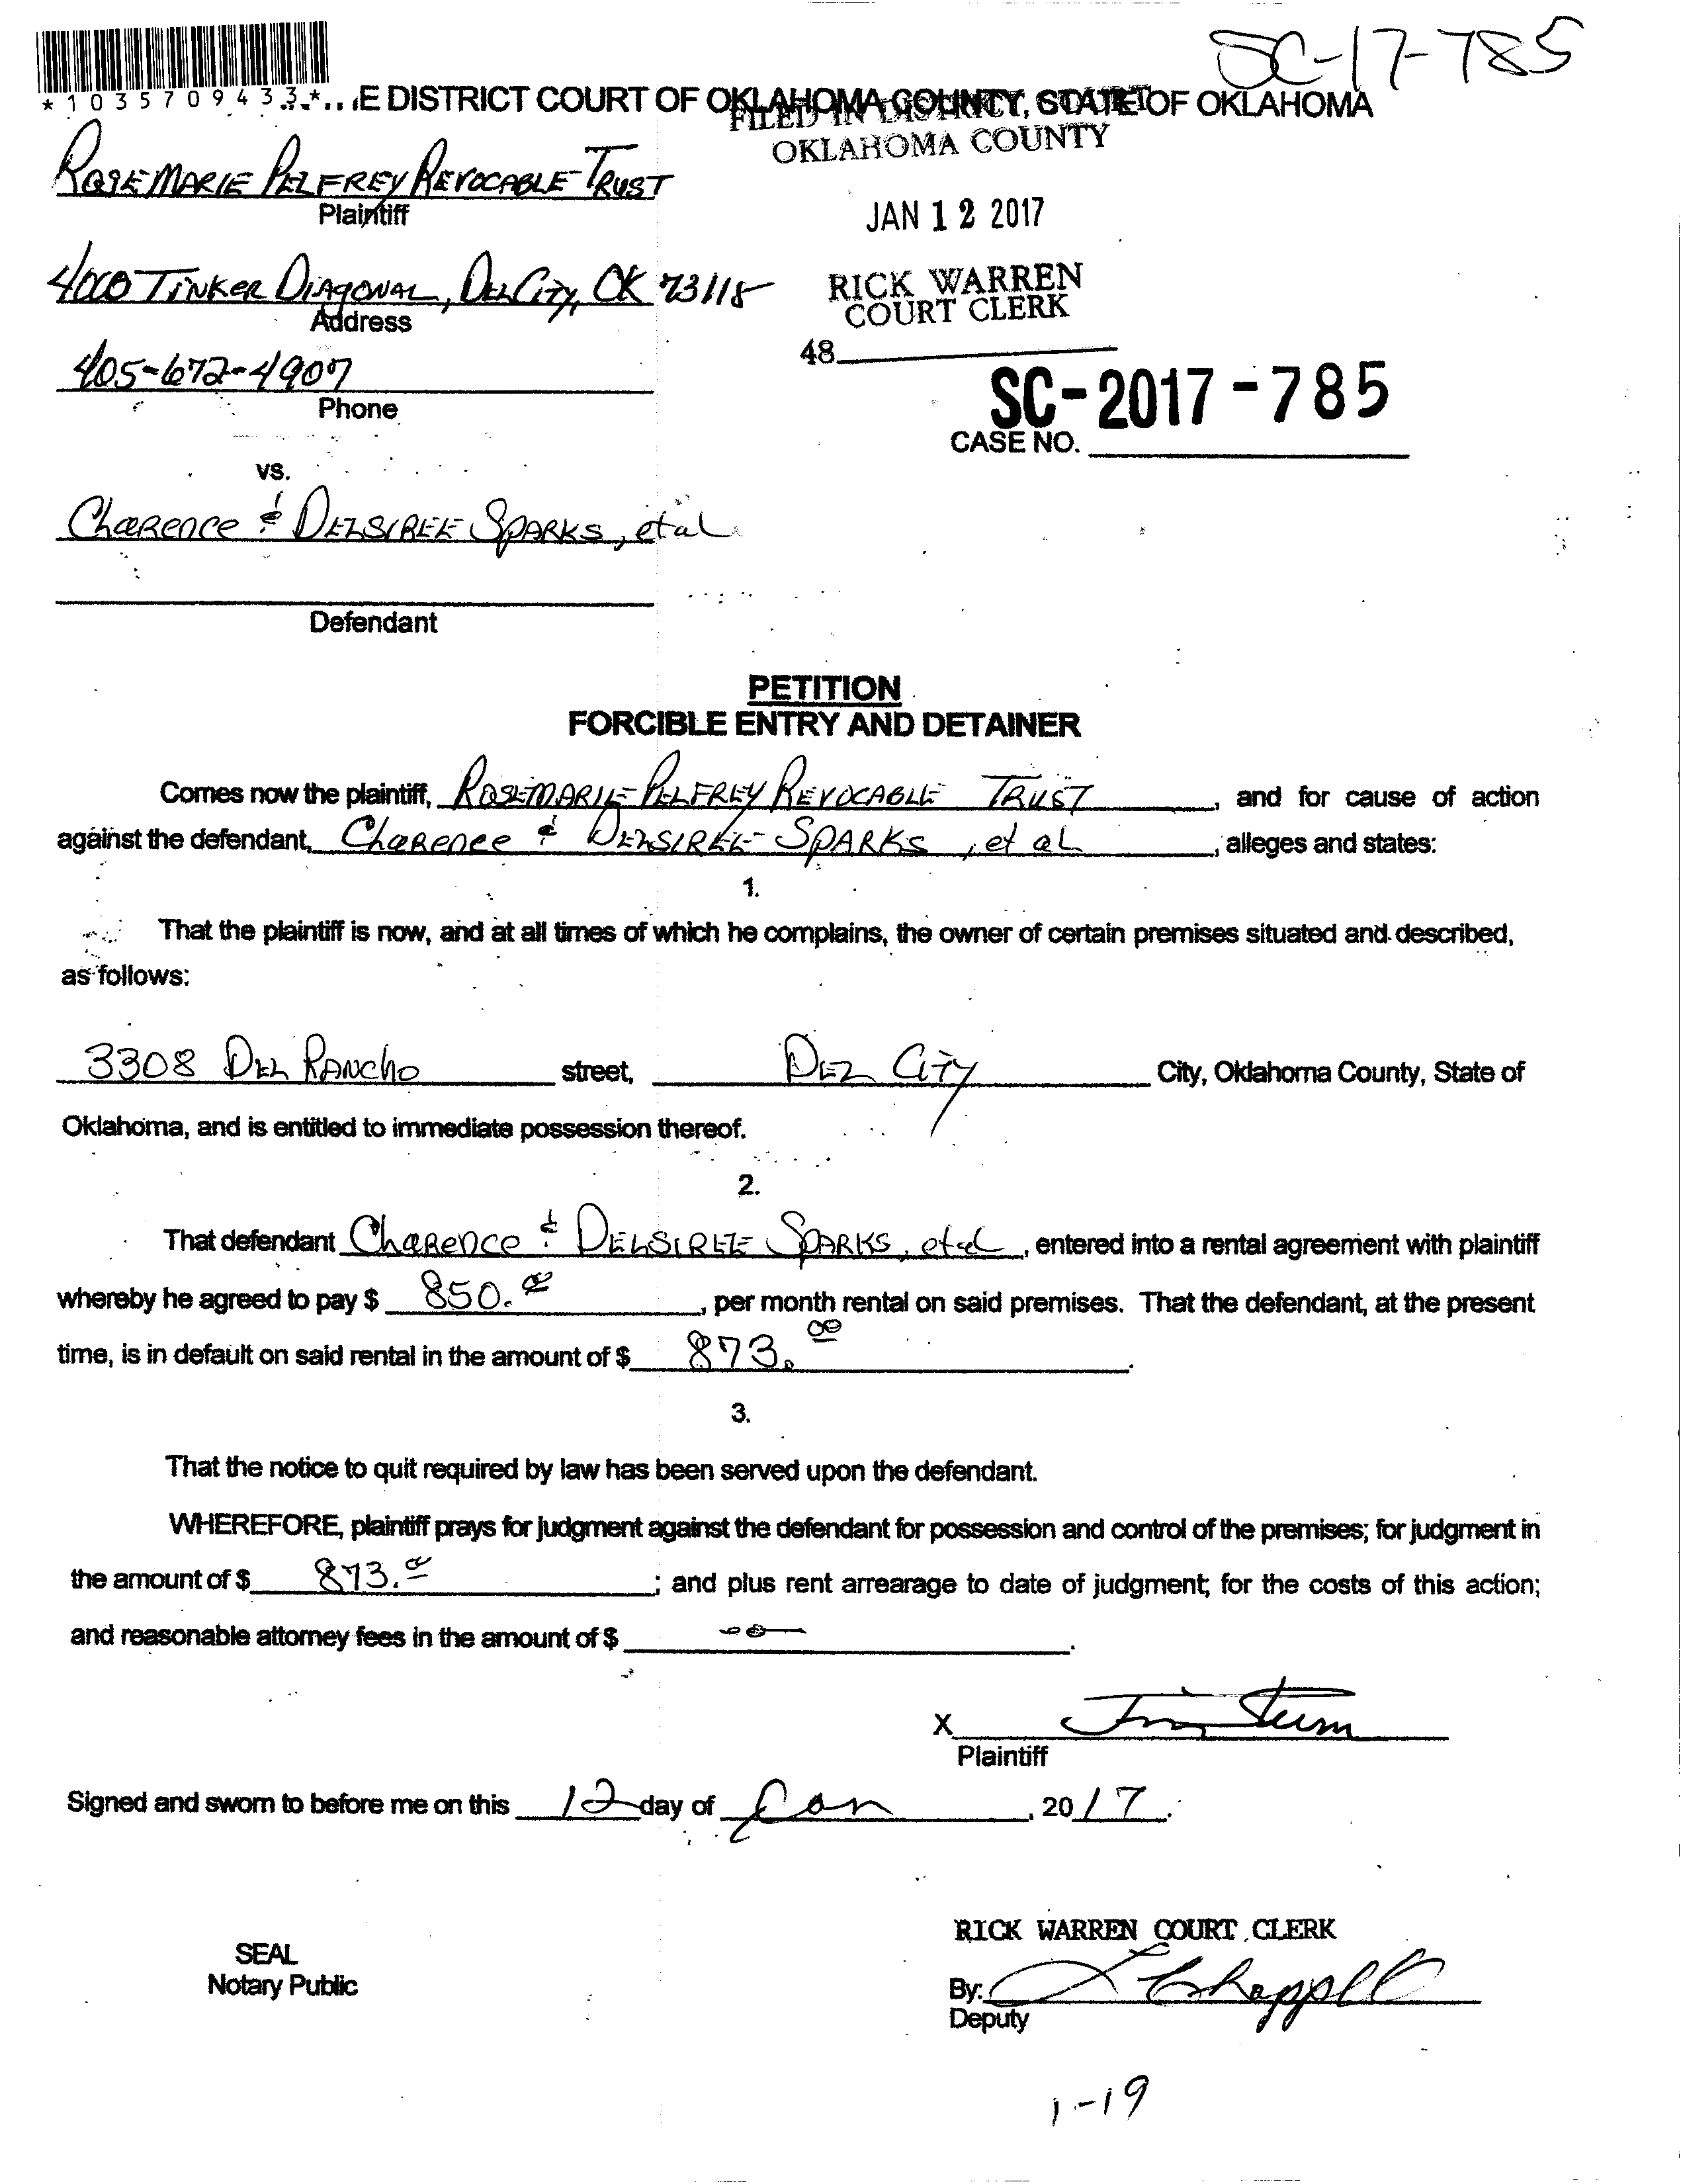 SC-17-785
*1035709433*
E DISTRICT COURT OF OKLAHOMA COUNTY, STATE OF OKLAHOMA
FILED IN DISTRICT COURT
OKLAHOMA COUNTY
ROSEMARIE PELFREY REVOCABLE TRUST
Plaintiff
JAN 12 2017
4000 TINKER DIAGONAL, DEL CITY, OK 73115
Address
RICK WARREN
COURT CLERK
405-672-4907
Phone
48
SC-2017-785
CASE NO.
vs.
Clarence & DELSIREE SPARKS, et al
Defendant
PETITION
FORCIBLE ENTRY AND DETAINER
Comes now the plaintiff, ROSEMARIE PELFREY REVOCABLE TRUST, and for cause of action
against the defendant, Clarence & DELSIREE SPARKS, et al, alleges and states:
1.
That the plaintiff is now, and at all times of which he complains, the owner of certain premises situated and described,
as follows:
3308 DEL RANCHO street, DEL CITY City, Oklahoma County, State of
Oklahoma, and is entitled to immediate possession thereof.
2.
That defendant Clarence & DELSIREE SPARKS, et al, entered into a rental agreement with plaintiff
whereby he agreed to pay $ 850.00, per month rental on said premises. That the defendant, at the present
time, is in default on said rental in the amount of $ 873.00.
3.
That the notice to quit required by law has been served upon the defendant.
WHEREFORE, plaintiff prays for judgment against the defendant for possession and control of the premises; for judgment in
the amount of $ 873.00; and plus rent arrearage to date of judgment; for the costs of this action;
and reasonable attorney fees in the amount of $ -0-.
X
Plaintiff
Signed and sworn to before me on this 12 day of Jan, 2017.
RICK WARREN COURT CLERK
SEAL
Notary Public
By:
Deputy
1-19